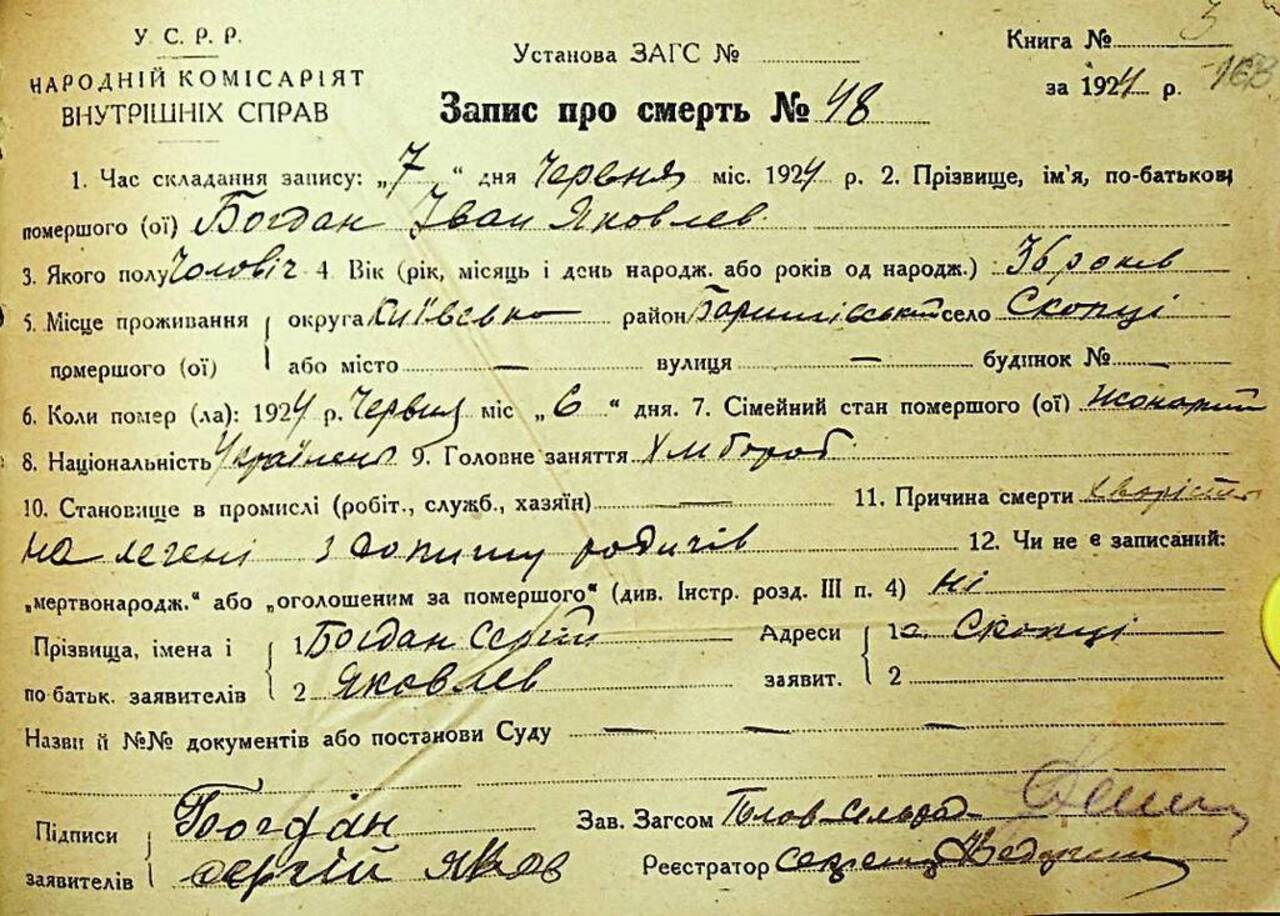 У. С. Р. Р.
НАРОДНІЙ КОМІСАРІЯТ
ВНУТРІШНІХ СПРАВ
Установа ЗАГС №
Книга № 3
за 1924 р. 168
Запис про смерть № 48
1. Час складання запису: „7“ дня Червня міс. 1924 р. 2. Прізвище, ім'я, по-батькові
помершого (ої) Богдан Іван Яковлев
3. Якого полу Чоловіч 4. Вік (рік, місяць і день народж. або років од народж.) 36 років
5. Місце проживання помершого (ої) округа Київсько район Баришівський село Скопці
або місто — вулиця — будинок № —
6. Коли помер (ла): 1924 р. Червня міс „6“ дня. 7. Сімейний стан помершого (ої) Жонатий
8. Національність Українець 9. Головне заняття Хлібороб
10. Становище в промислі (робіт., служб., хазяїн) — 11. Причина смерти хворість
на легені з допиту родичів 12. Чи не є записаний:
„мертвонародж.“ або „оголошеним за помершого“ (див. Інстр. розд. III п. 4) ні
Прізвища, імена і по батьк. заявителів 1 Богдан Сергій Адреси заявит. 1 с. Скопці
2 Яковлев 2
Назви й №№ документів або постанови Суду — — —
Підписи заявителів Богдан Зав. Загсом Голов сельрад
Сергій Яков Реєстратор